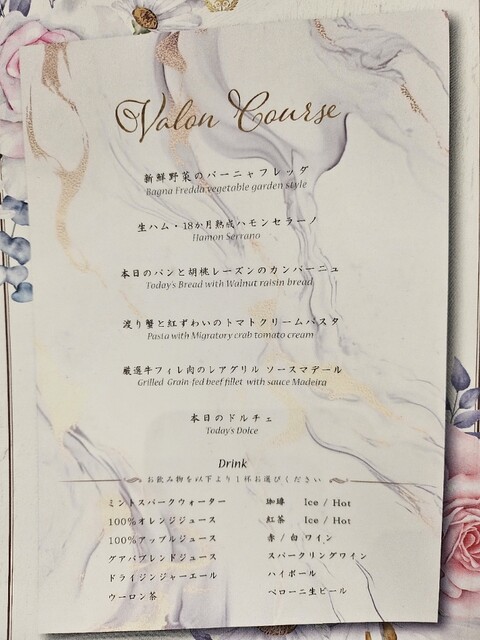 Valon Course
新鮮野菜のバーニャフレッダ
Bagna Fredda vegetable garden style
生ハム・18か月熟成ハモンセラーノ
Hamon Serrano
本日のパンと胡桃レーズンのカンパーニュ
Today's Bread with Walnut raisin bread
渡り蟹と紅ずわいのトマトクリームパスタ
Pasta with Migratory crab tomato cream
厳選牛フィレ肉のレアグリル ソースマデール
Grilled Grain-fed beef fillet with sauce Madeira
本日のドルチェ
Today's Dolce
Drink
お飲み物を以下より1杯お選びください
ミントスパークウォーター 珈琲 Ice / Hot
100%オレンジジュース 紅茶 Ice / Hot
100%アップルジュース 赤 / 白 ワイン
グアバブレンドジュース スパークリングワイン
ドライジンジャーエール ハイボール
ウーロン茶 ペローニ生ビール